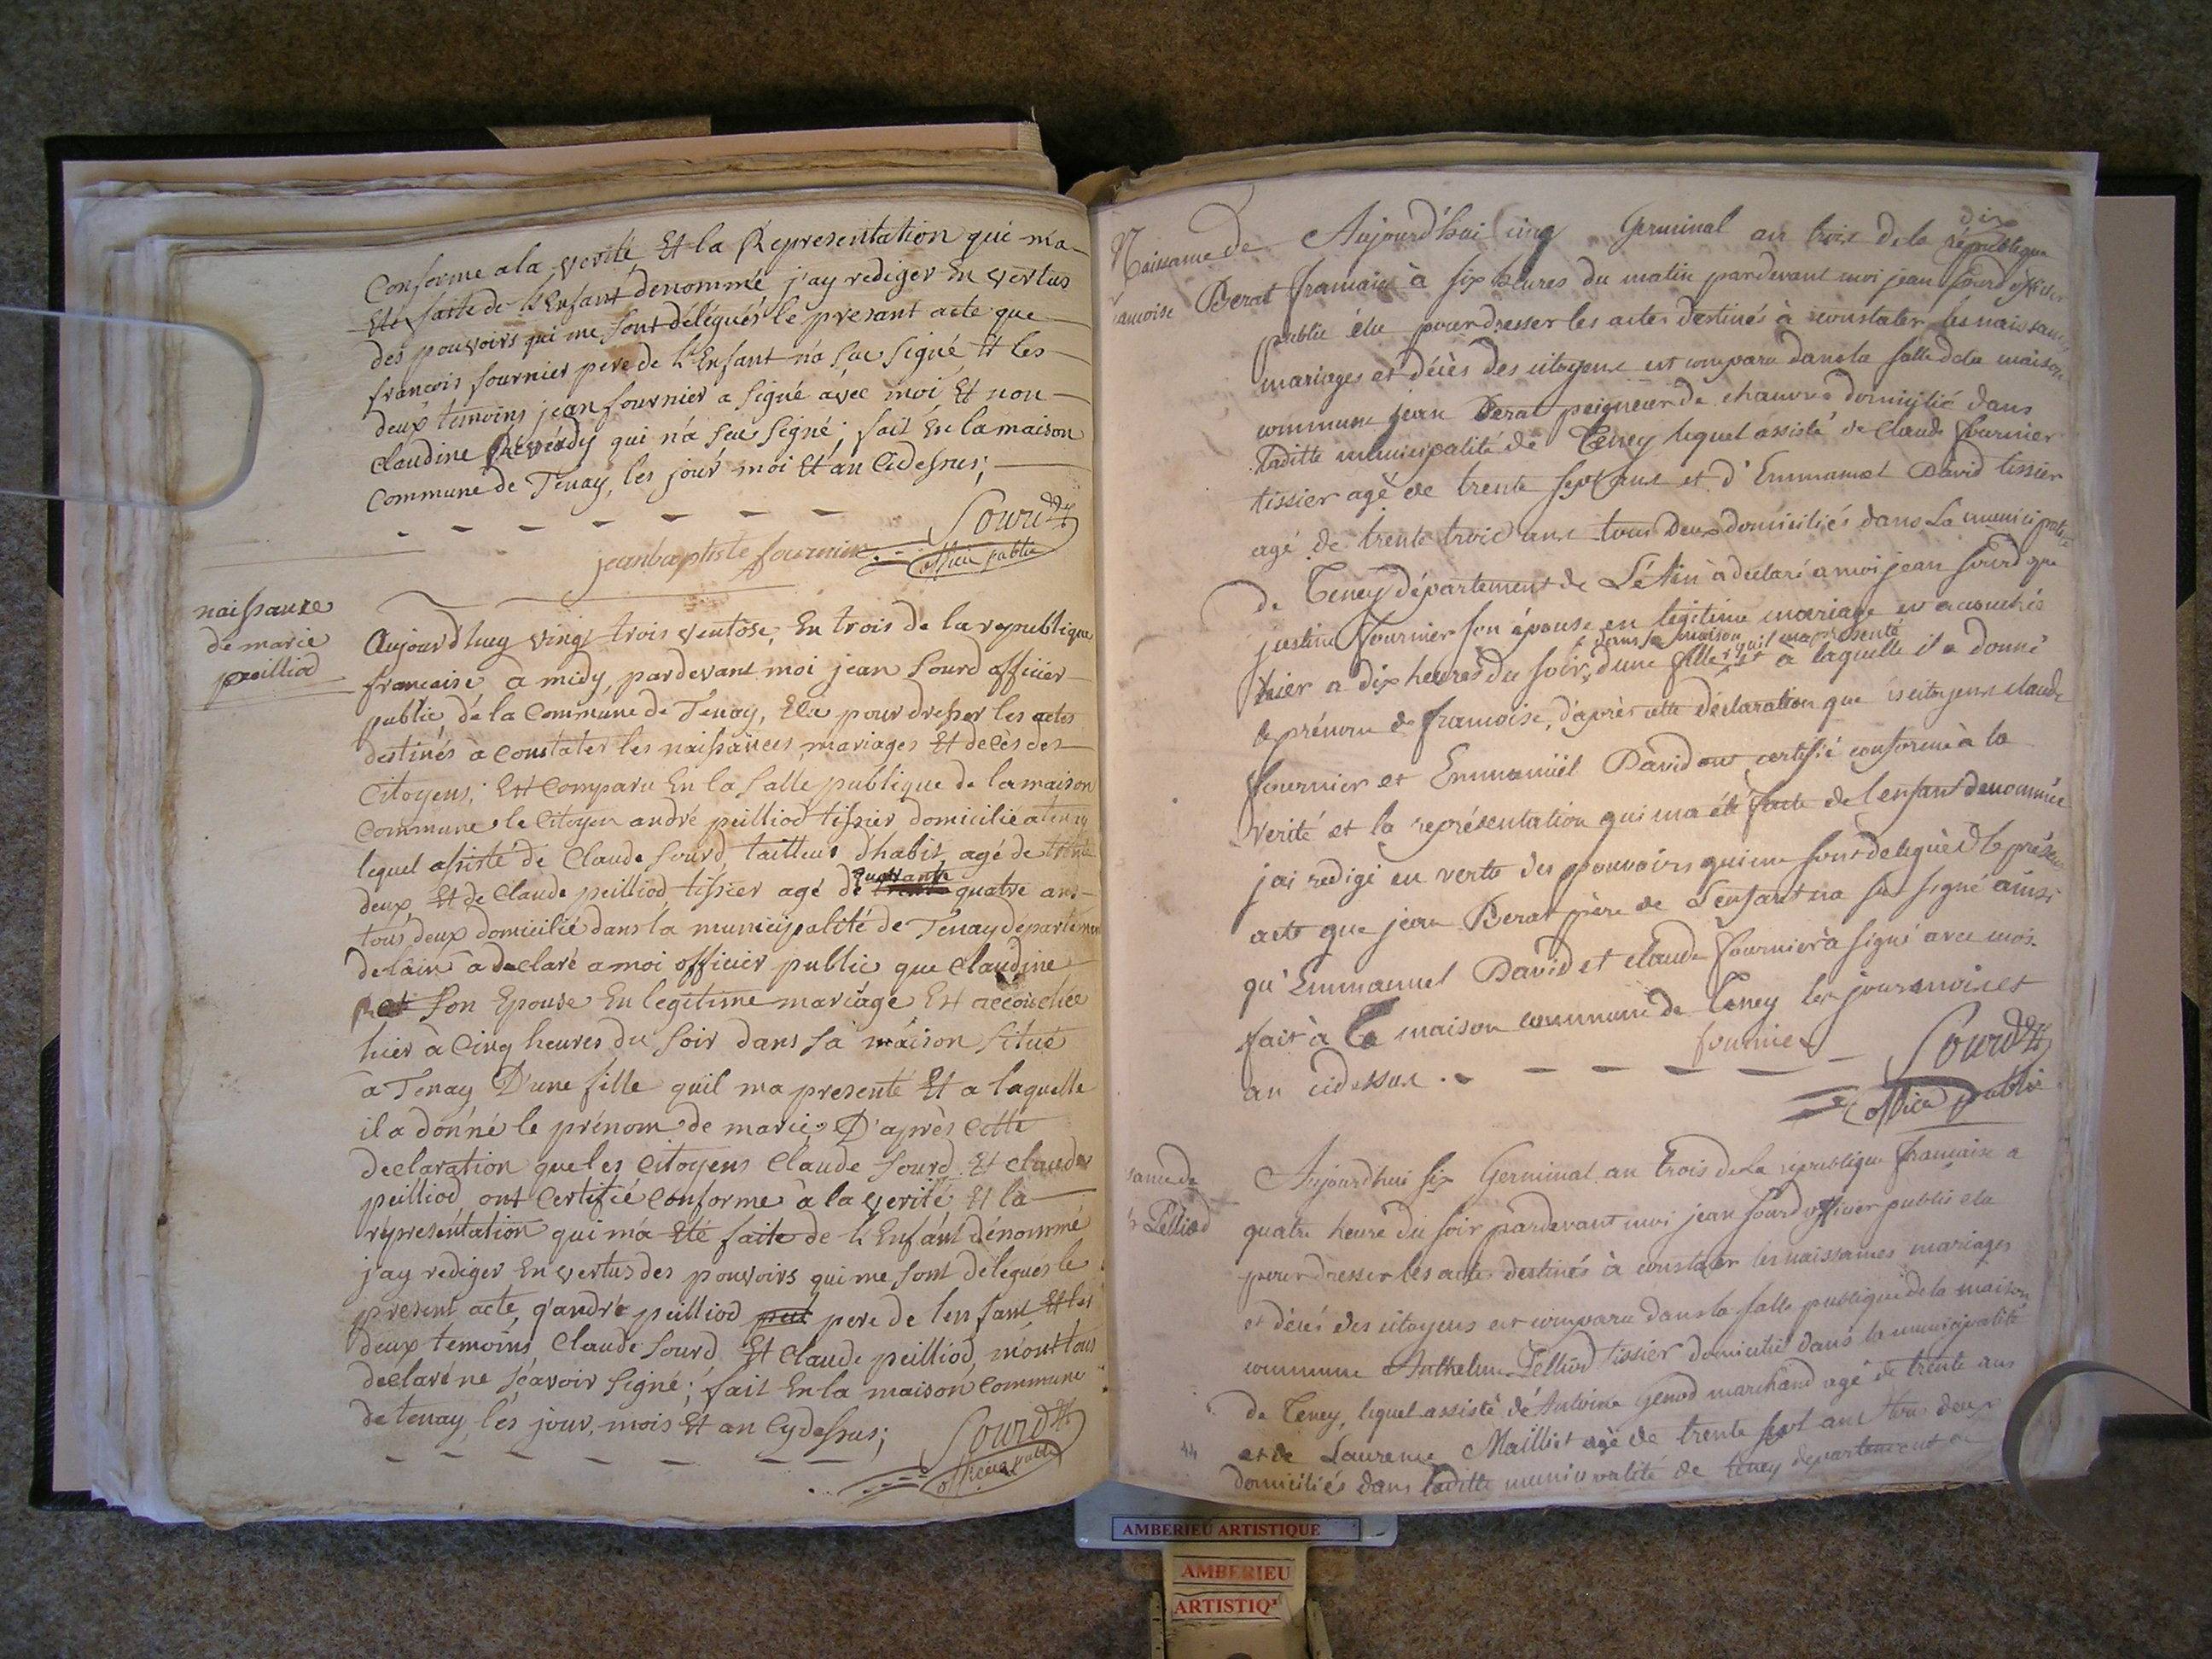 Conforme a la verité Et la Representation qui ma
Eté faite de l'Enfant denommé j'ay rediger En vertus
des pouvoirs qui me sont délégués le presant acte que
françois fournier pere de l'Enfant n'a sçu signé Et les
deux temoins jean fournier a signé avec moi Et non
Claudine qui n'a sçu signé; fait En la maison
Commune de Tenay, les jour moi Et an Cidessus;
Sourd
jeanbaptiste fournier
officier public
naissance
de marie
peilliod
Aujourd'huy vingt trois ventose, En trois de la republique
francaise a midy, pardevant moi jean Sourd officier
public de la Commune de Tenay, Elu pour dresser les actes
destinés à Constater les naissances, mariages Et decès des
Citoyens; Est Comparu En la salle publique de la maison
Commune le Citoyen andré peilliod tissier domicilié a tenay
lequel assisté de Claude Sourd, tailleur d'habit, agé de trente
quarante
deux Et de Claude peilliod, tissier agé de trente quatre ans
tous deux domicilié dans la municipalité de Tenay departement
de lain a declaré a moi officier public que Claudine
son Epouse En legitime mariage Est accouchée
hier à Cinq heures du soir dans sa maison situé
a Tenay D'une fille quil ma presenté Et a laquelle
il a donné le prénom de marie, D'après Cette
declaration que les Citoyens Claude Sourd Et Claude
peilliod ont Certifié Conforme à la verité Et la
représentation qui m'a Eté faite de l'Enfant dénommé
j'ay rediger En vertus des pouvoirs qui me sont delegués le
present acte, q'andré peilliod peil pere de lenfant Et les
deux temoins Claude Sourd Et Claude peilliod, m'ont tous
declaré ne sçavoir signé; fait En la maison Commune
de tenay, les jour, mois Et an Cydessus;
Sourd
officier public
Naissance de
francoise Berat
Aujourd'hui cinq Germinal an trois de la république
française à six heures du matin pardevant moi jean Sourd officier
public élu pour dresser les actes destinés à constater les naissances
mariages et décès des citoyens est comparu dans la salle de la maison
commune jean Berat peigneur de chanvre domicilié dans
laditte municipalité de Teney lequel assisté de Claude fournier
tissier agé de trente sept ans et d'Emmanuel David tissier
agé de trente trois ans tous deux domiciliés dans La municipalité
de Teney département de L'Ain a déclaré a moi jean Sourd que
justine fournier son épouse en légitime mariage est accouchée
dans sa maison quil ma présenté
hier a dix heures du soir, dune fille et a laquelle il a donné
le prénom de francoise, d'après cette déclaration que les citoyens claude
fournier et Emmanuel David ont certifié conforme à la
verité et la représentation qui ma été faite de l'enfant denommée
jai redigé en vertu des pouvoirs qui me sont délégués le présent
acte que jean Berat père de L'enfant na su signé ainsi
qu'Emmanuel David et claude fournier a signé avec moi
fait à la maison commune de Teney les jour mois et
an cidessus.
fournier
Sourd
officier public
Pelliod
Aujourdhui six Germinal an trois de la république française a
quatre heure du soir pardevant moi jean Sourd officier public elu
pour dresser les actes destinés à constater les naissances mariages
et décés des citoyens est comparu dans la salle publique de la maison
commune Anthelme Pelliod tissier domicilié dans la municipalité
de Teney, lequel assisté d'Antoine Genod marchand agé de trente ans
et de Laurence Maillet agé de trente sept ans tous deux
domiciliés dans laditte municipalité de teney departement de
44
AMBERIEU ARTISTIQUE
AMBERIEU
ARTISTIQ